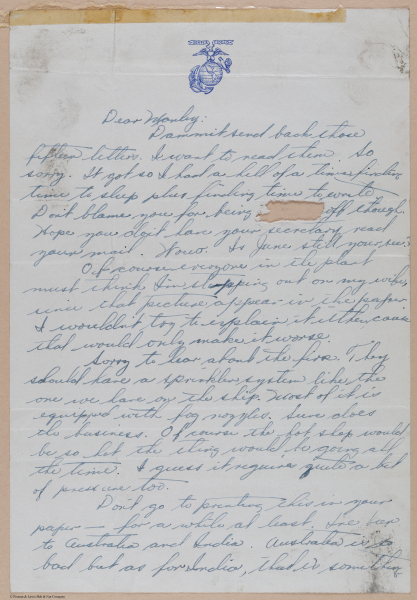 Dear Manley:
Dammit send back those
fifteen letters. I want to read them. So
sorry. It got so I had a hell of a time finding
time to sleep plus finding time to write
Don't blame you for being off though.
Hope you didn't have your secretary read
your mail. Wow. Is June still your sec?
Of course everyone in the plant
must think I'm stepping out on my wife
since that picture appear in the paper.
I wouldn't try to explain it either cause
that would only make it worse.
Sorry to hear about the fire. They
should have a sprinkler system like the
one we have on the ship. Most of it is
equipped with fog nozzles. Sure does
the business. Of course the hot shop would
be so hot the thing would be going all
the time. I guess it requires quite a bit
of pressure too.
Don't go to printing this in your
paper — for a while at least. I've been
to Australia and India. Australia is so
bad but as for India, that is something